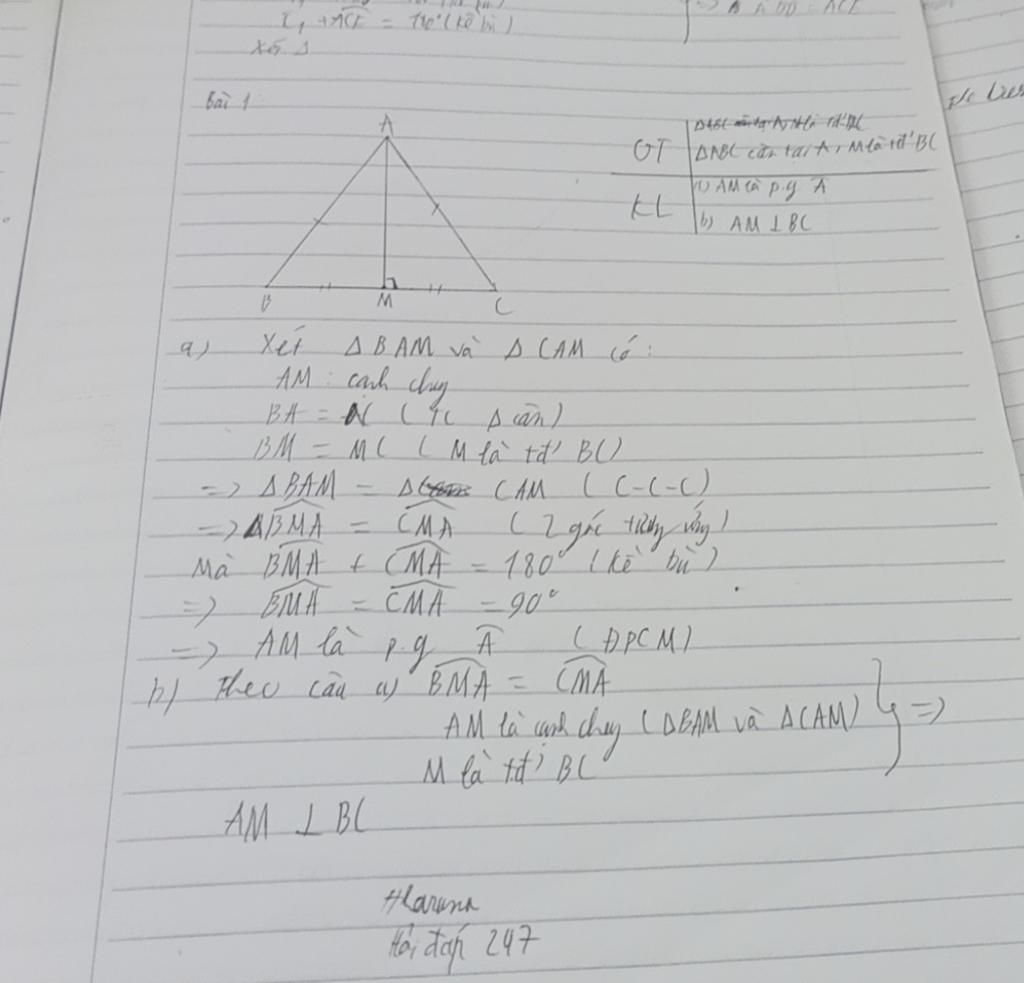 + ACE = 180° (kề bù)
Xét Δ
Bài 1
A
B
M
C
GT
ΔABC cân tại A, M là tđ' BC
KL
a) AM là p.g A
b) AM ⊥ BC
a) Xét Δ BAM và Δ CAM có:
AM: cạnh chug
BA = AC (TC Δ cân)
BM = MC (M là tđ' BC)
=> ΔBAM = Δ CAM (C-C-C)
=> BMA = CMA (2 góc tương ứng)
Mà BMA + CMA = 180° (kề bù)
=> BMA = CMA = 90°
=> AM là p.g A (ĐPCM)
b) Theo câu a) BMA = CMA
AM là cạnh chug (ΔBAM và ΔCAM) } =>
M là tđ' BC
AM ⊥ BC
Haruna
Hỏi đáp 247